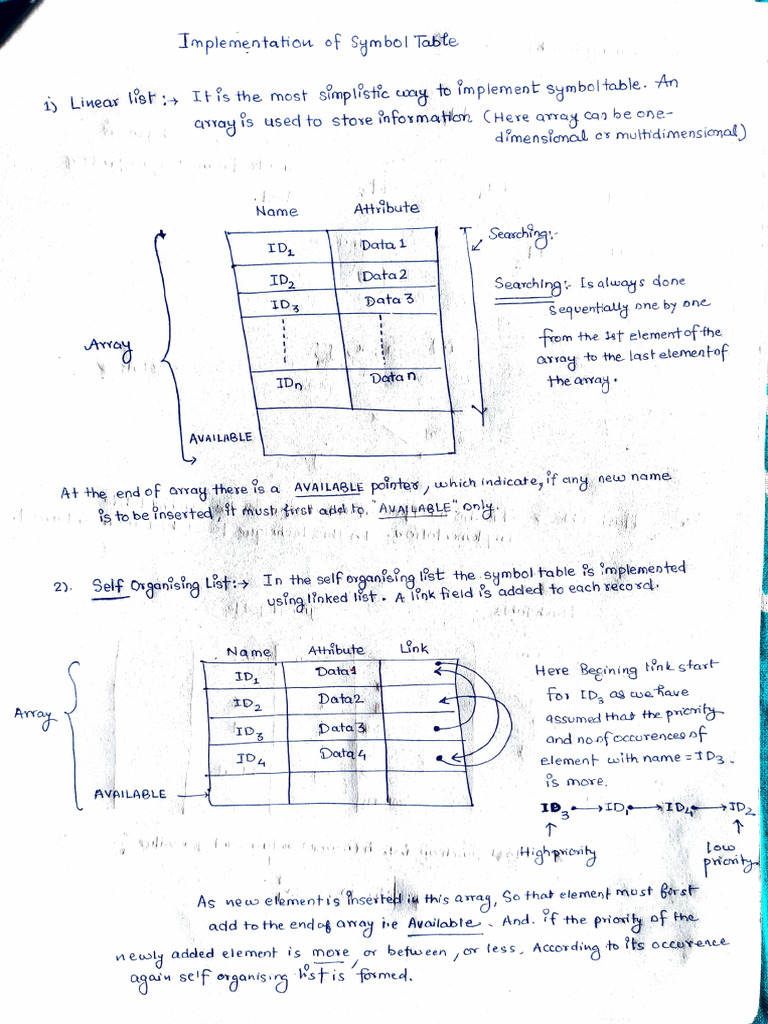 Implementation of Symbol Table
1) Linear list :→ It is the most simplistic way to implement symbol table. An
array is used to store information (Here array can be one-
dimensional or multidimensional)
Name Attribute
ID1 Data 1
ID2 Data 2
ID3 Data 3
IDn Data n
Array
AVAILABLE
Searching:-
Searching:- Is always done
sequentially one by one
from the 1st element of the
array to the last element of
the array.
At the end of array there is a AVAILABLE pointer, which indicate, if any new name
is to be inserted, it must first add to "AVAILABLE" only.
2). Self Organising List :→ In the self organising list the symbol table is implemented
using linked list. A link field is added to each record.
Name Attribute Link
ID1 Data 1
ID2 Data 2
ID3 Data 3
ID4 Data 4
Array
AVAILABLE →
Here Begining link start
for ID3 as we have
assumed that the priority
and no of occurences of
element with name = ID3.
is more.
ID3 → ID1 → ID4 → ID2
↑ ↑
High priority low
priority
As new element is inserted in this array, So that element must first
add to the end of array i.e Available. And. if the priority of the
newly added element is more, or between, or less. According to its occurence
again self organising list is formed.